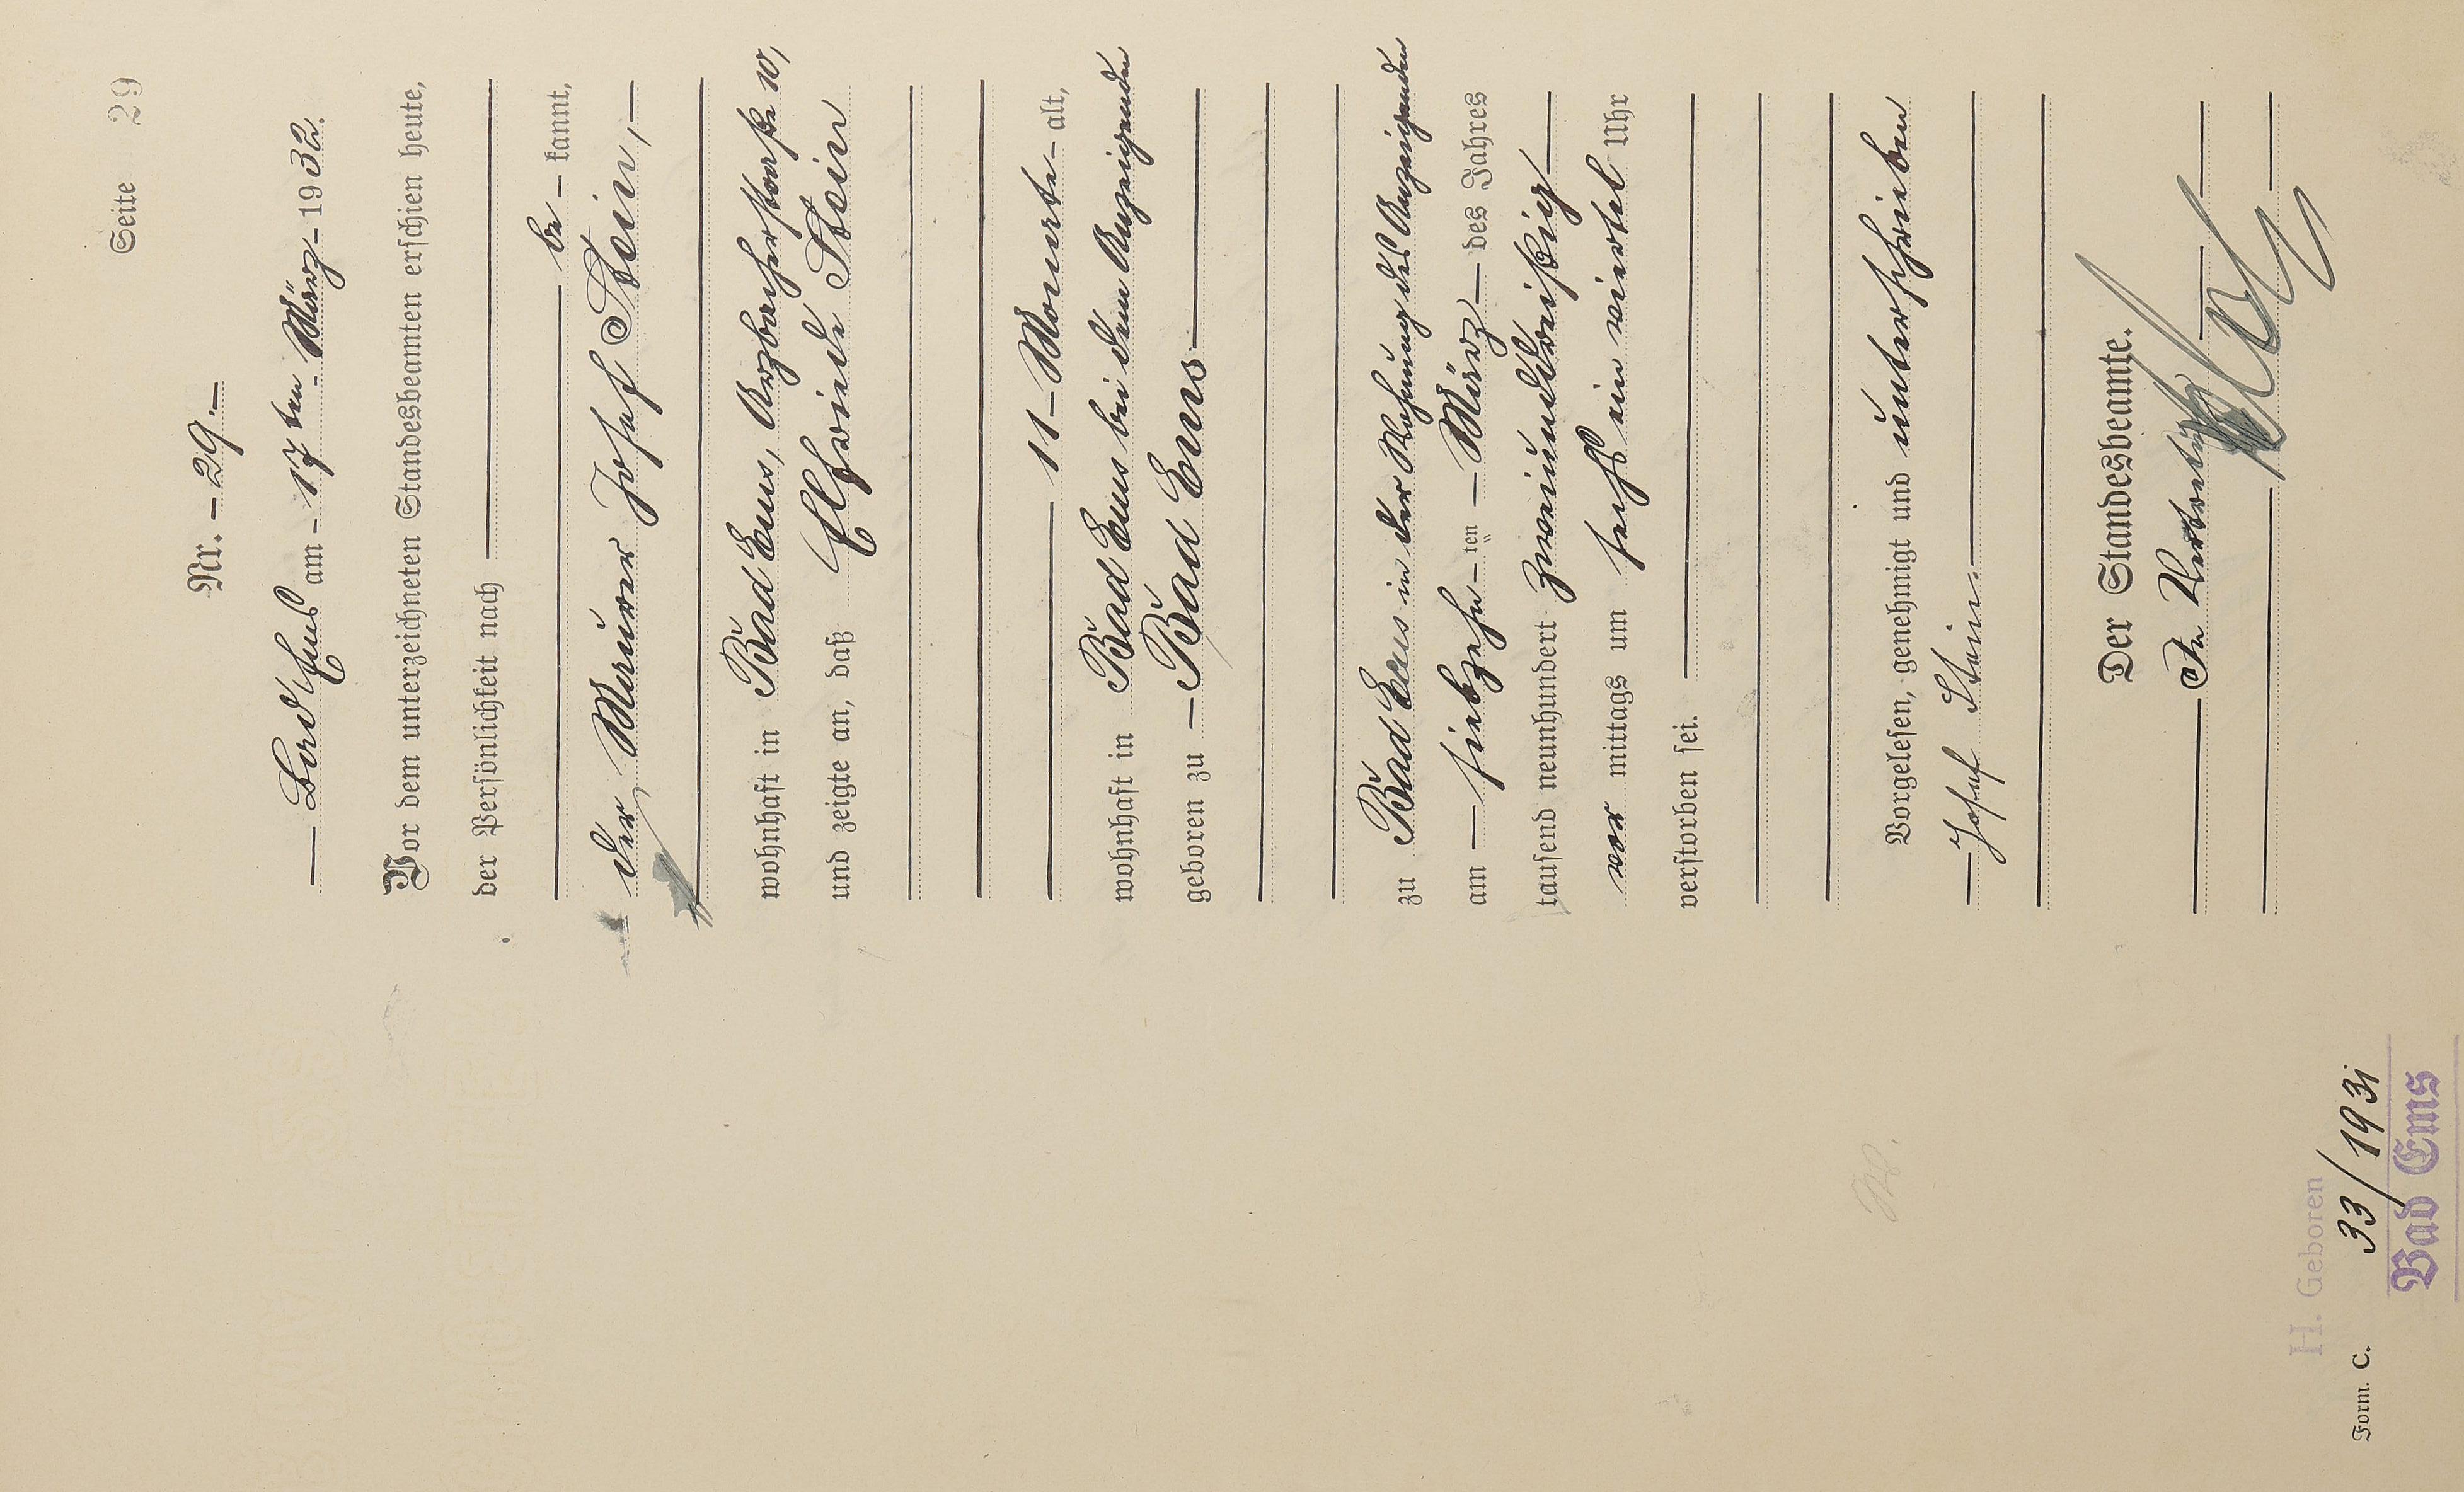 Seite 29
Nr. — 29.—
— Bad Ems am — 17ten März — 1932.
Vor dem unterzeichneten Standesbeamten erschien heute,
der Persönlichkeit nach —
— be — kannt,
der Maurer Josef Stein, —
wohnhaft in Bad Ems, Arzbacherstraße 10,
und zeigte an, daß Elfriede Stein
— 11 — Monate — alt,
wohnhaft in Bad Ems bei dem Anzeigenden
geboren zu — Bad Ems. —
zu Bad Ems in der Wohnung des Anzeigenden
am — siebzehn — ten — März — des Jahres
tausend neunhundert zweiunddreißig —
vor mittags um sechs ein viertel Uhr
verstorben sei. —
Vorgelesen, genehmigt und unterschrieben
— Josef Stein. —
Der Standesbeamte.
In Vertretung
H. Geboren
Form. C. 33/1931
Bad Ems